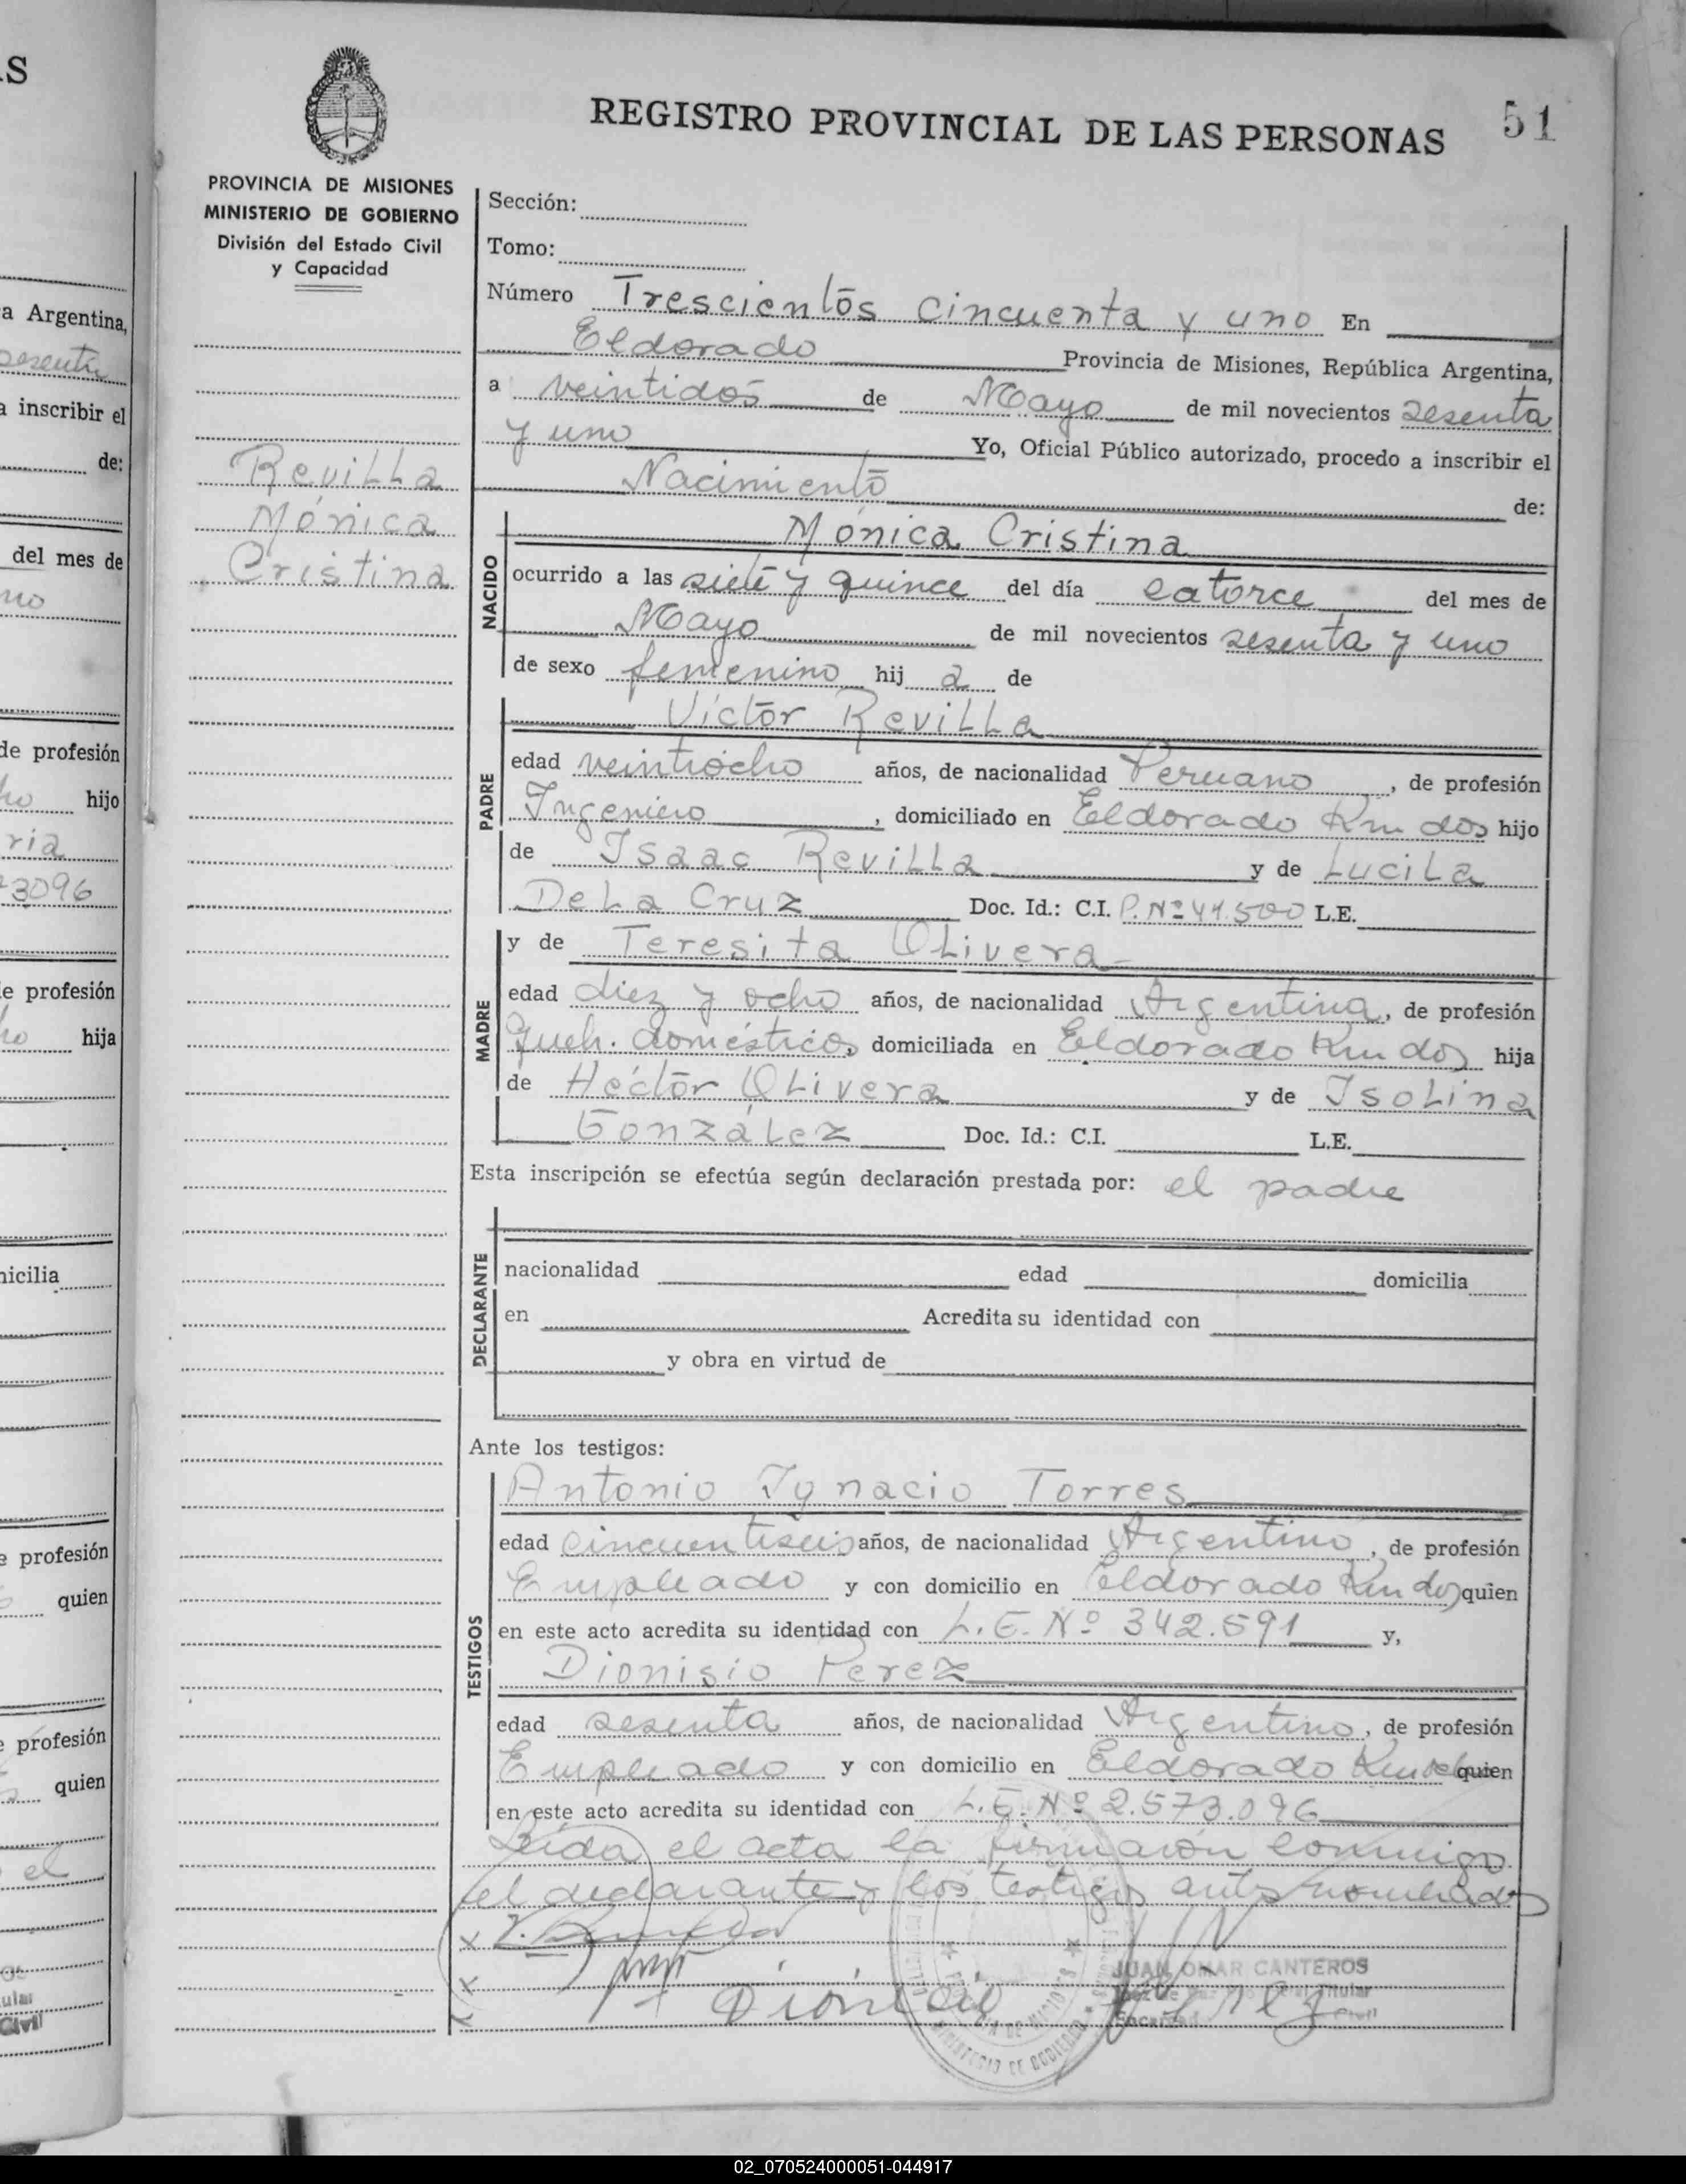 REGISTRO PROVINCIAL DE LAS PERSONAS
51
PROVINCIA DE MISIONES
MINISTERIO DE GOBIERNO
División del Estado Civil
y Capacidad
Revilla
Mónica
Cristina
Sección:
Tomo:
Número Trescientos cincuenta y uno En
Eldorado Provincia de Misiones, República Argentina,
a veintidos de Mayo de mil novecientos sesenta
y uno Yo, Oficial Público autorizado, procedo a inscribir el
Nacimiento de:
NACIDO
Mónica Cristina
ocurrido a las siete y quince del día catorce del mes de
Mayo de mil novecientos sesenta y uno
de sexo femenino hij a de
PADRE
Victor Revilla
edad veintiocho años, de nacionalidad Peruano, de profesión
Ingeniero, domiciliado en Eldorado Km dos hijo
de Isaac Revilla y de Lucila
De La Cruz Doc. Id.: C.I. P. Nº 41.500 L.E.
MADRE
y de Teresita Olivera
edad diez y ocho años, de nacionalidad Argentina, de profesión
Queh. domésticos, domiciliada en Eldorado Km dos hija
de Héctor Olivera y de Isolina
González Doc. Id.: C.I. L.E.
Esta inscripción se efectúa según declaración prestada por: el padre
DECLARANTE
nacionalidad edad domicilia
en Acredita su identidad con
y obra en virtud de
Ante los testigos:
TESTIGOS
Antonio Ygnacio Torres
edad cincuentiseis años, de nacionalidad Argentino, de profesión
Empleado y con domicilio en Eldorado Km dos quien
en este acto acredita su identidad con L.E. Nº 342.591 y,
Dionisio Perez
edad sesenta años, de nacionalidad Argentino, de profesión
Empleado y con domicilio en Eldorado Km quien
en este acto acredita su identidad con L.E. Nº 2.573.096
Leida el acta la firmaron conmigo
el declarante y los testigos antes nombrados
JUAN OMAR CANTEROS
Titular
Civil
MINISTERIO DE GOBIERNO
02_070524000051-044917